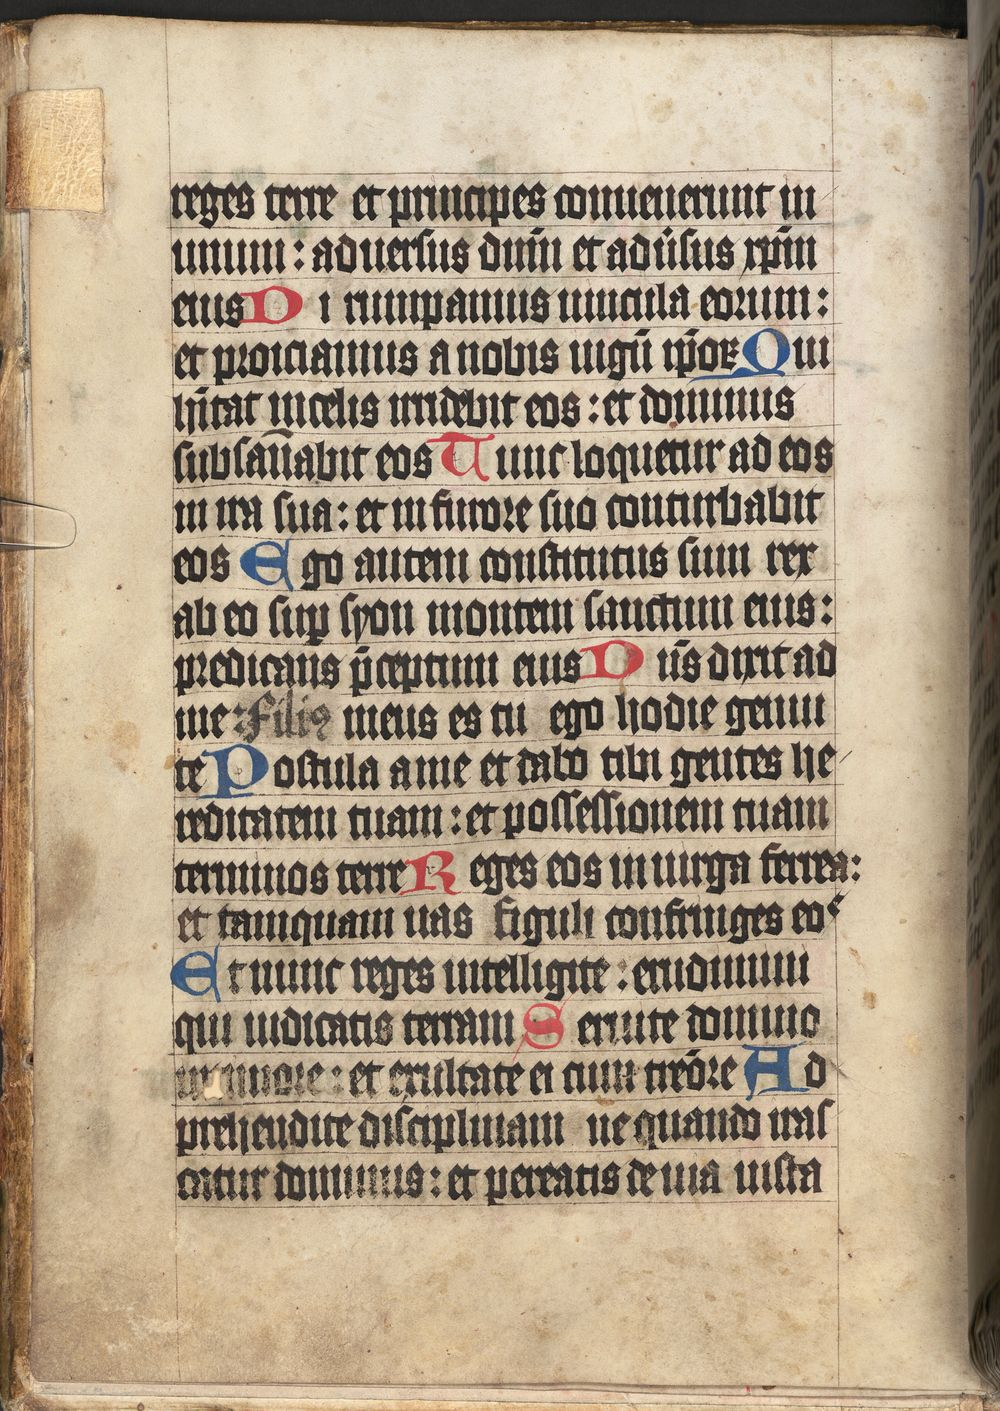 reges terre et principes conuenerunt in
unum : aduersus dn̄m et adūsus xp̄m
eius Di rumpamus uincula eorum :
et proiciamus a nobis iugū ip̄oꝝ Qui
hītat in celis irridebit eos : et dominus
subsan̄abit eos Tunc loquetur ad eos
in ira sua : et in furore suo conturbabit
eos Ego autem constitutus sum rex
ab eo suꝑ syon montem sanctum eius :
predicans p̄ceptum eius Dn̄s dixit ad
me : Filiꝰ meus es tu ego hodie genui
te Postula a me et dabo tibi gentes he
reditatem tuam : et possessionem tuam
terminos terre Reges eos in uirga ferrea :
et tamquam uas figuli confringes eos
Et nunc reges intelligite : erudimini
qui iudicatis terram Seruite domino
in timore : et exultate ei cum treōre Ad
prehendite disciplinam ne quando iras
catur dominus : et pereatis de uia iusta